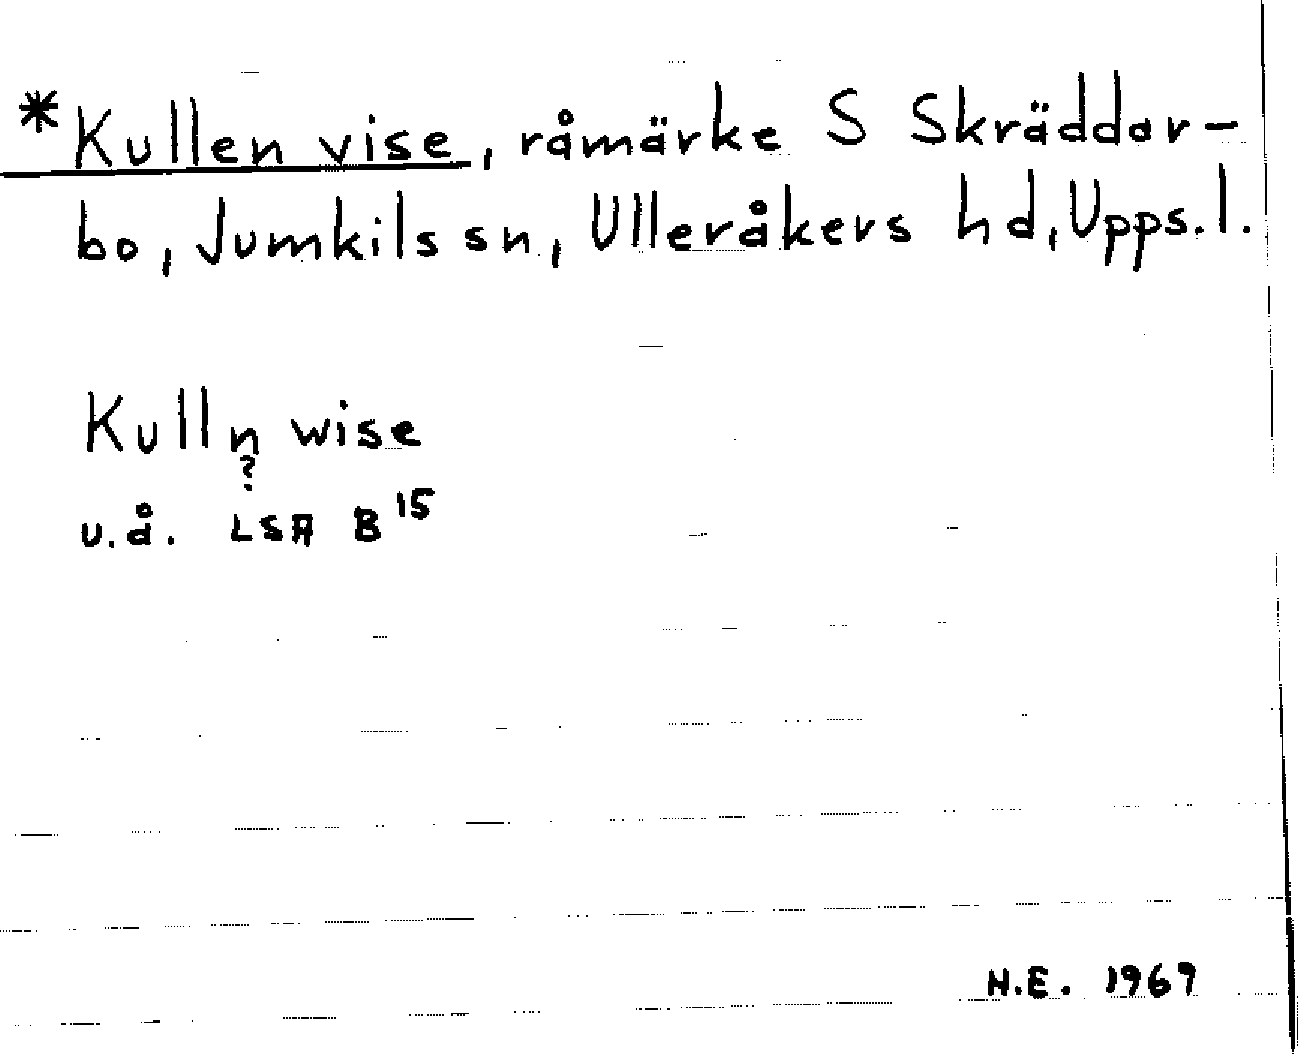 *Kullen vise, råmärke S Skräddar-
bo, Jumkils sn, Ulleråkers hd, Upps.l.
Kulln wise
?
u.å. LSA B 15
N.E. 1969